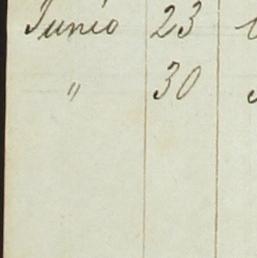 Junio 23
" 30